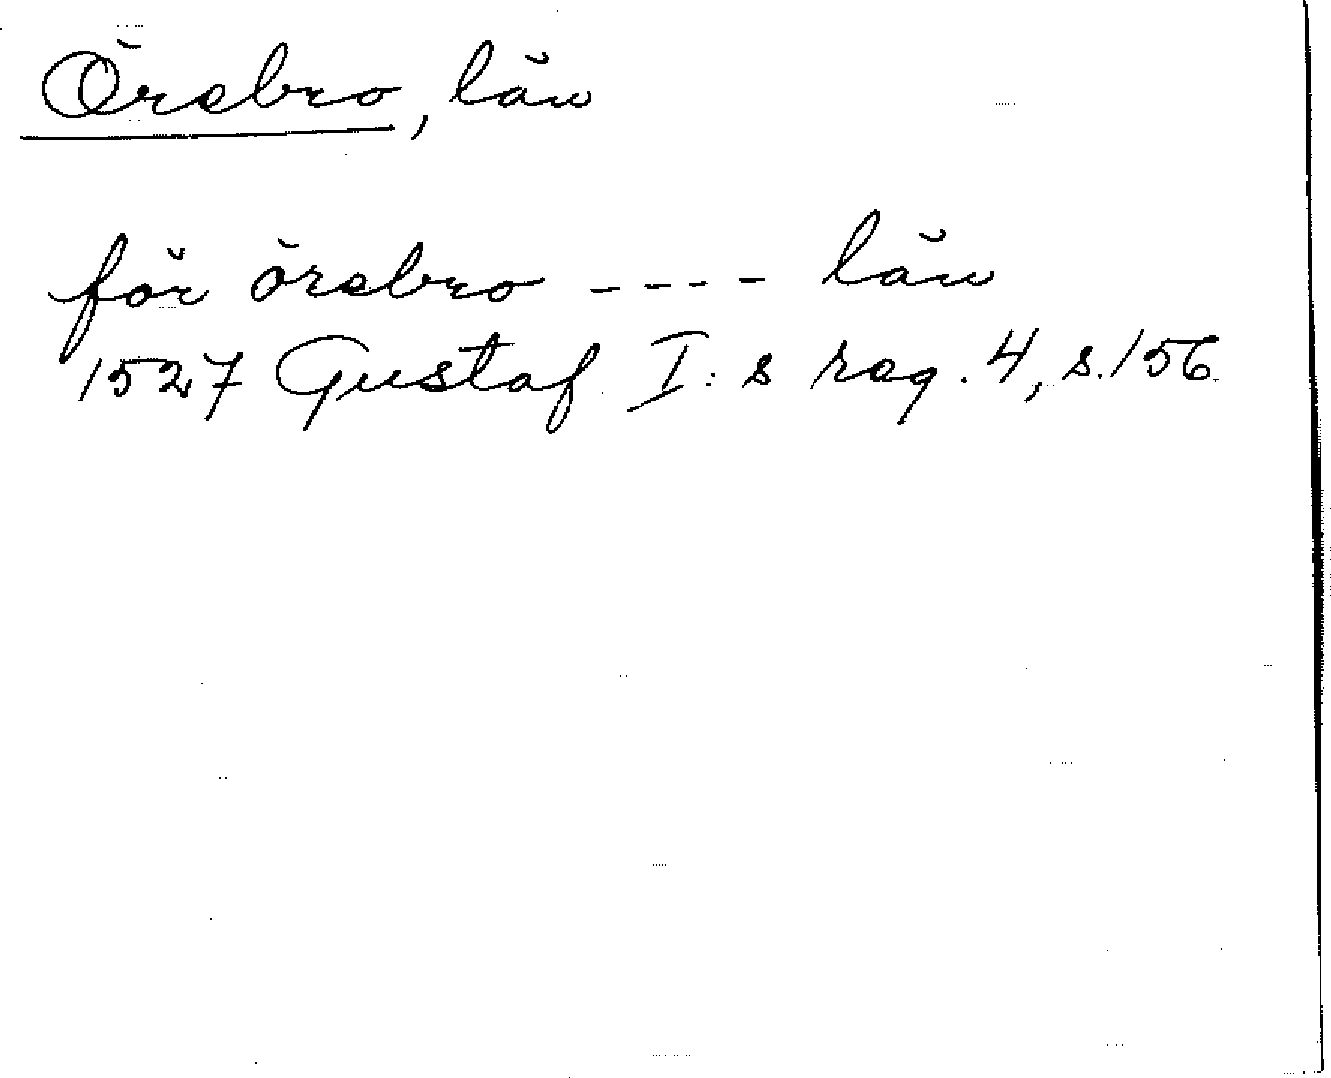 Örebro, län
för örebro ---- län
1527 Gustaf I:s reg. 4, s. 156